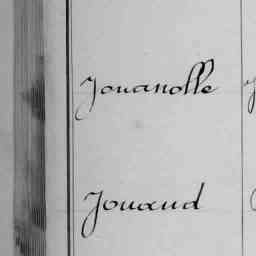 Jouanolle
Jouaud